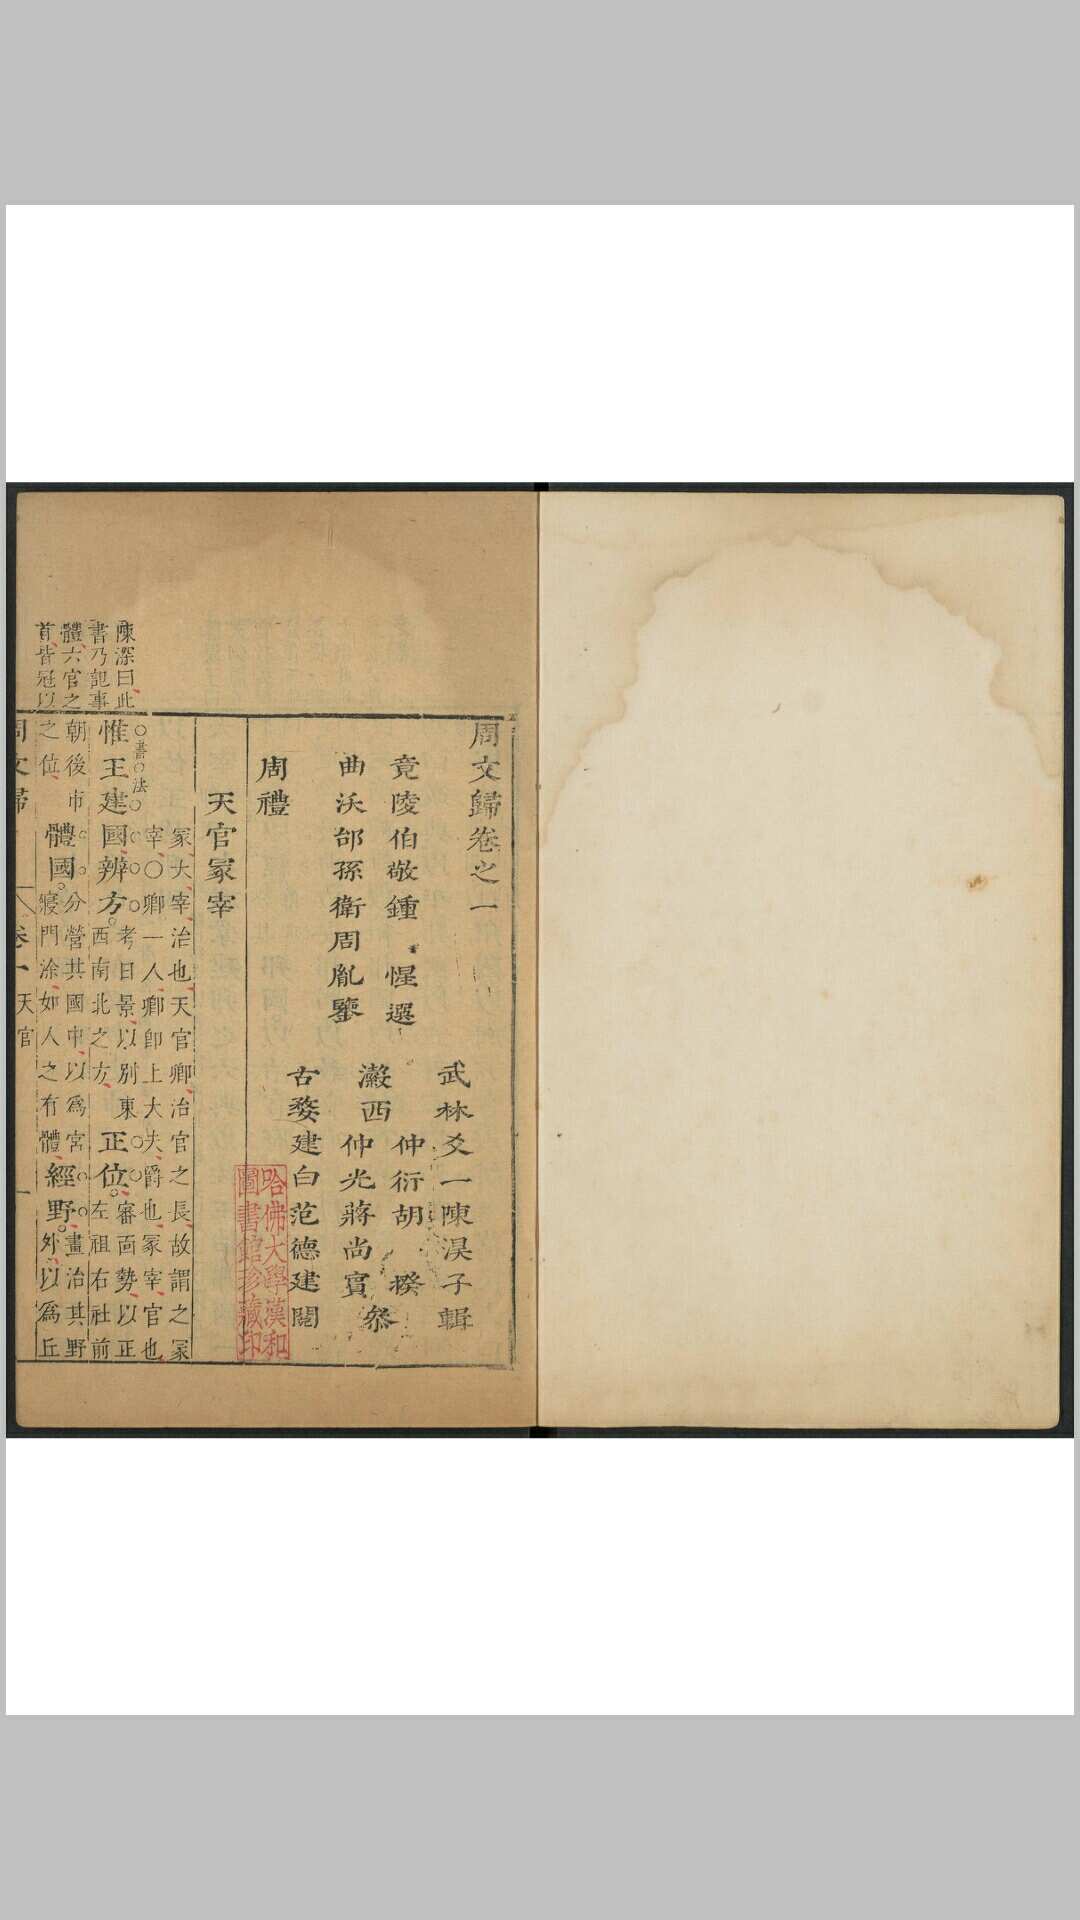 周文歸卷之一
武林爻一陳淏子輯
竟陵伯敬鍾惺選
仲衍胡揆
瀫西
叅
仲光蔣尚賓
曲沃邰孫衛周胤鑒
古婺建白范德建閱
周禮
哈佛大學漢和
圖書館珍藏印
天官冢宰
冢大宰治也天官卿治官之長故謂之冢
宰〇卿一人卿卽上大夫爵也冢宰官也
書法
惟王建國辨方
考日景以別東
西南北之方
正位
審面勢以正
左祖右社前
朝後市
之位
體國
分營其國中以爲宮
寢門涂如人之有體
經野
畫治其野
外以爲丘
陳深曰此
書乃記事
體六官之
首皆冠以
周文歸
卷一
天官
一